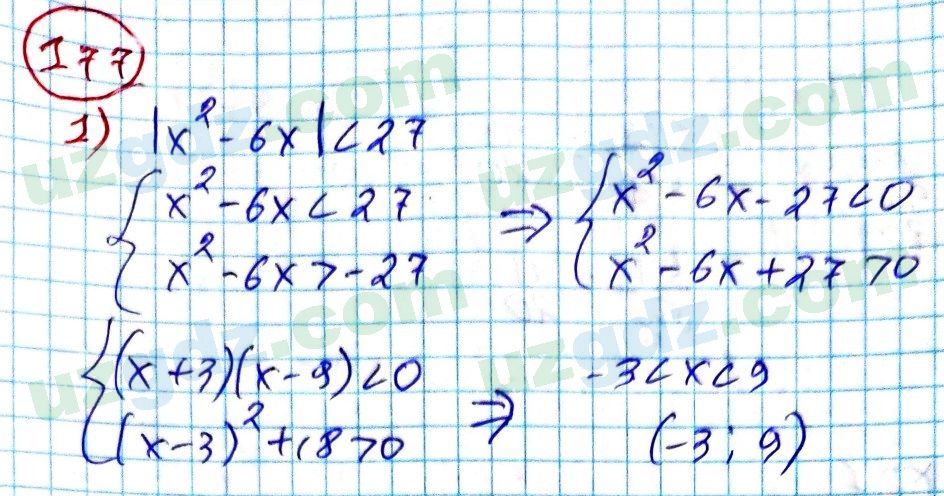 177
1) |x² - 6x| < 27
{ x² - 6x < 27
x² - 6x > -27
⇒ { x² - 6x - 27 < 0
x² - 6x + 27 > 0
{ (x + 3)(x - 9) < 0
(x - 3)² + 18 > 0
⇒ -3 < x < 9
(-3; 9)
uzgdz.com
uzgdz.com
uzgdz.com
uzgdz.com